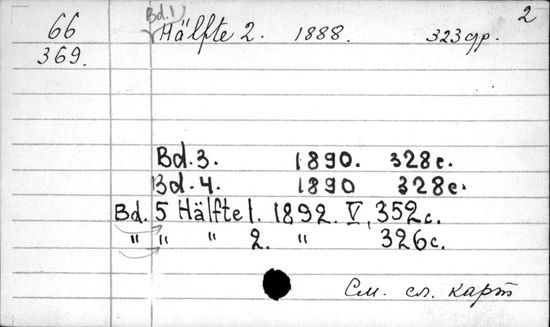 2
Bd.1)
66 Hälfte 2. 1888. 323 др.
369.
Bd. 3. 1890. 328 с.
Bd. 4. 1890 328 с.
Bd. 5 Hälfte 1. 1892. V, 352 с.
" " " 2. " 326 с.
См. сл. карт